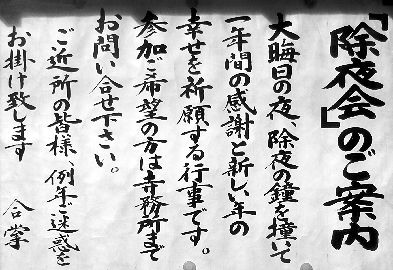 「除夜会」のご案内
大晦日の夜、除夜の鐘を撞いて
一年間の感謝と新しい年の
幸せを祈願する行事です。
参加ご希望の方は寺務所まで
お問い合せ下さい。
ご近所の皆様、例年ご迷惑を
お掛け致します　合掌